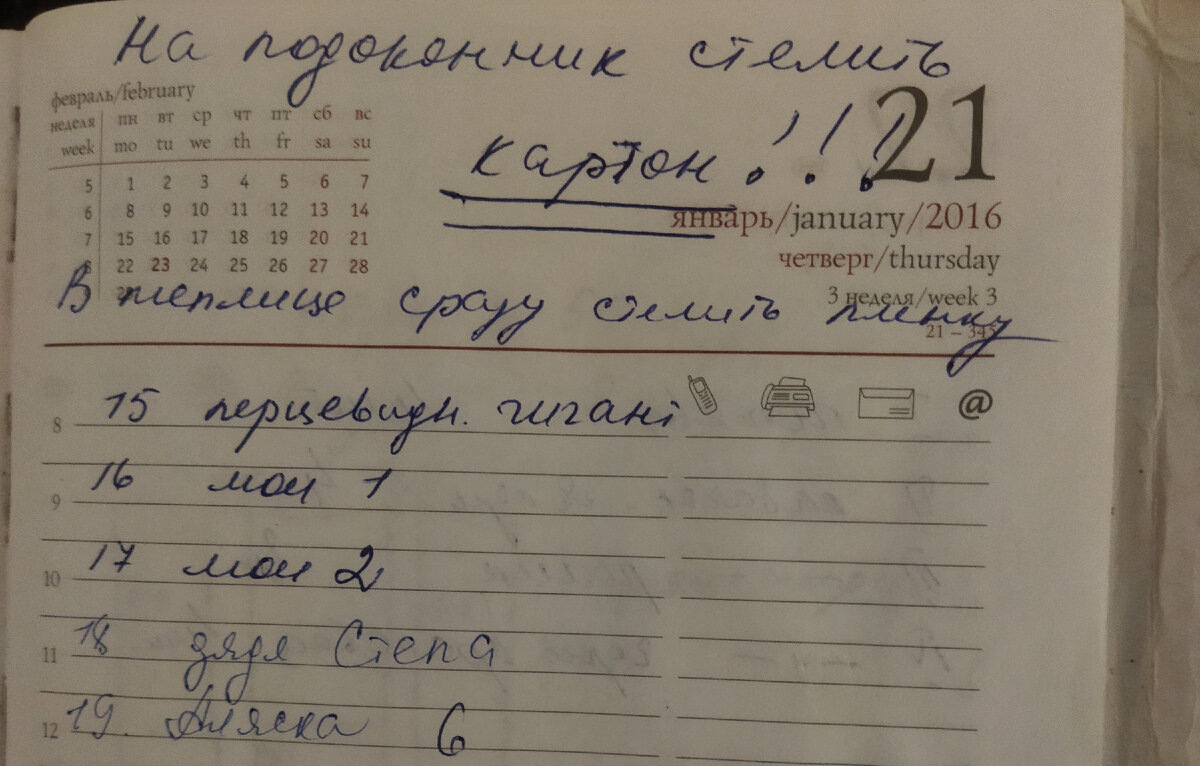 На подоконник стелить
февраль/february
неделя пн вт ср чт пт сб вс
week mo tu we th fr sa su
5 1 2 3 4 5 6 7
6 8 9 10 11 12 13 14
7 15 16 17 18 19 20 21
8 22 23 24 25 26 27 28
картон!!!
21
январь/january/2016
четверг/thursday
3 неделя/week 3
21 – 345
В теплице сразу стелить пленку
@
8 15 перцевидн. гигант
9 16 мои 1
10 17 мои 2
11 18 дядя Степа
12 19. Аляска 6